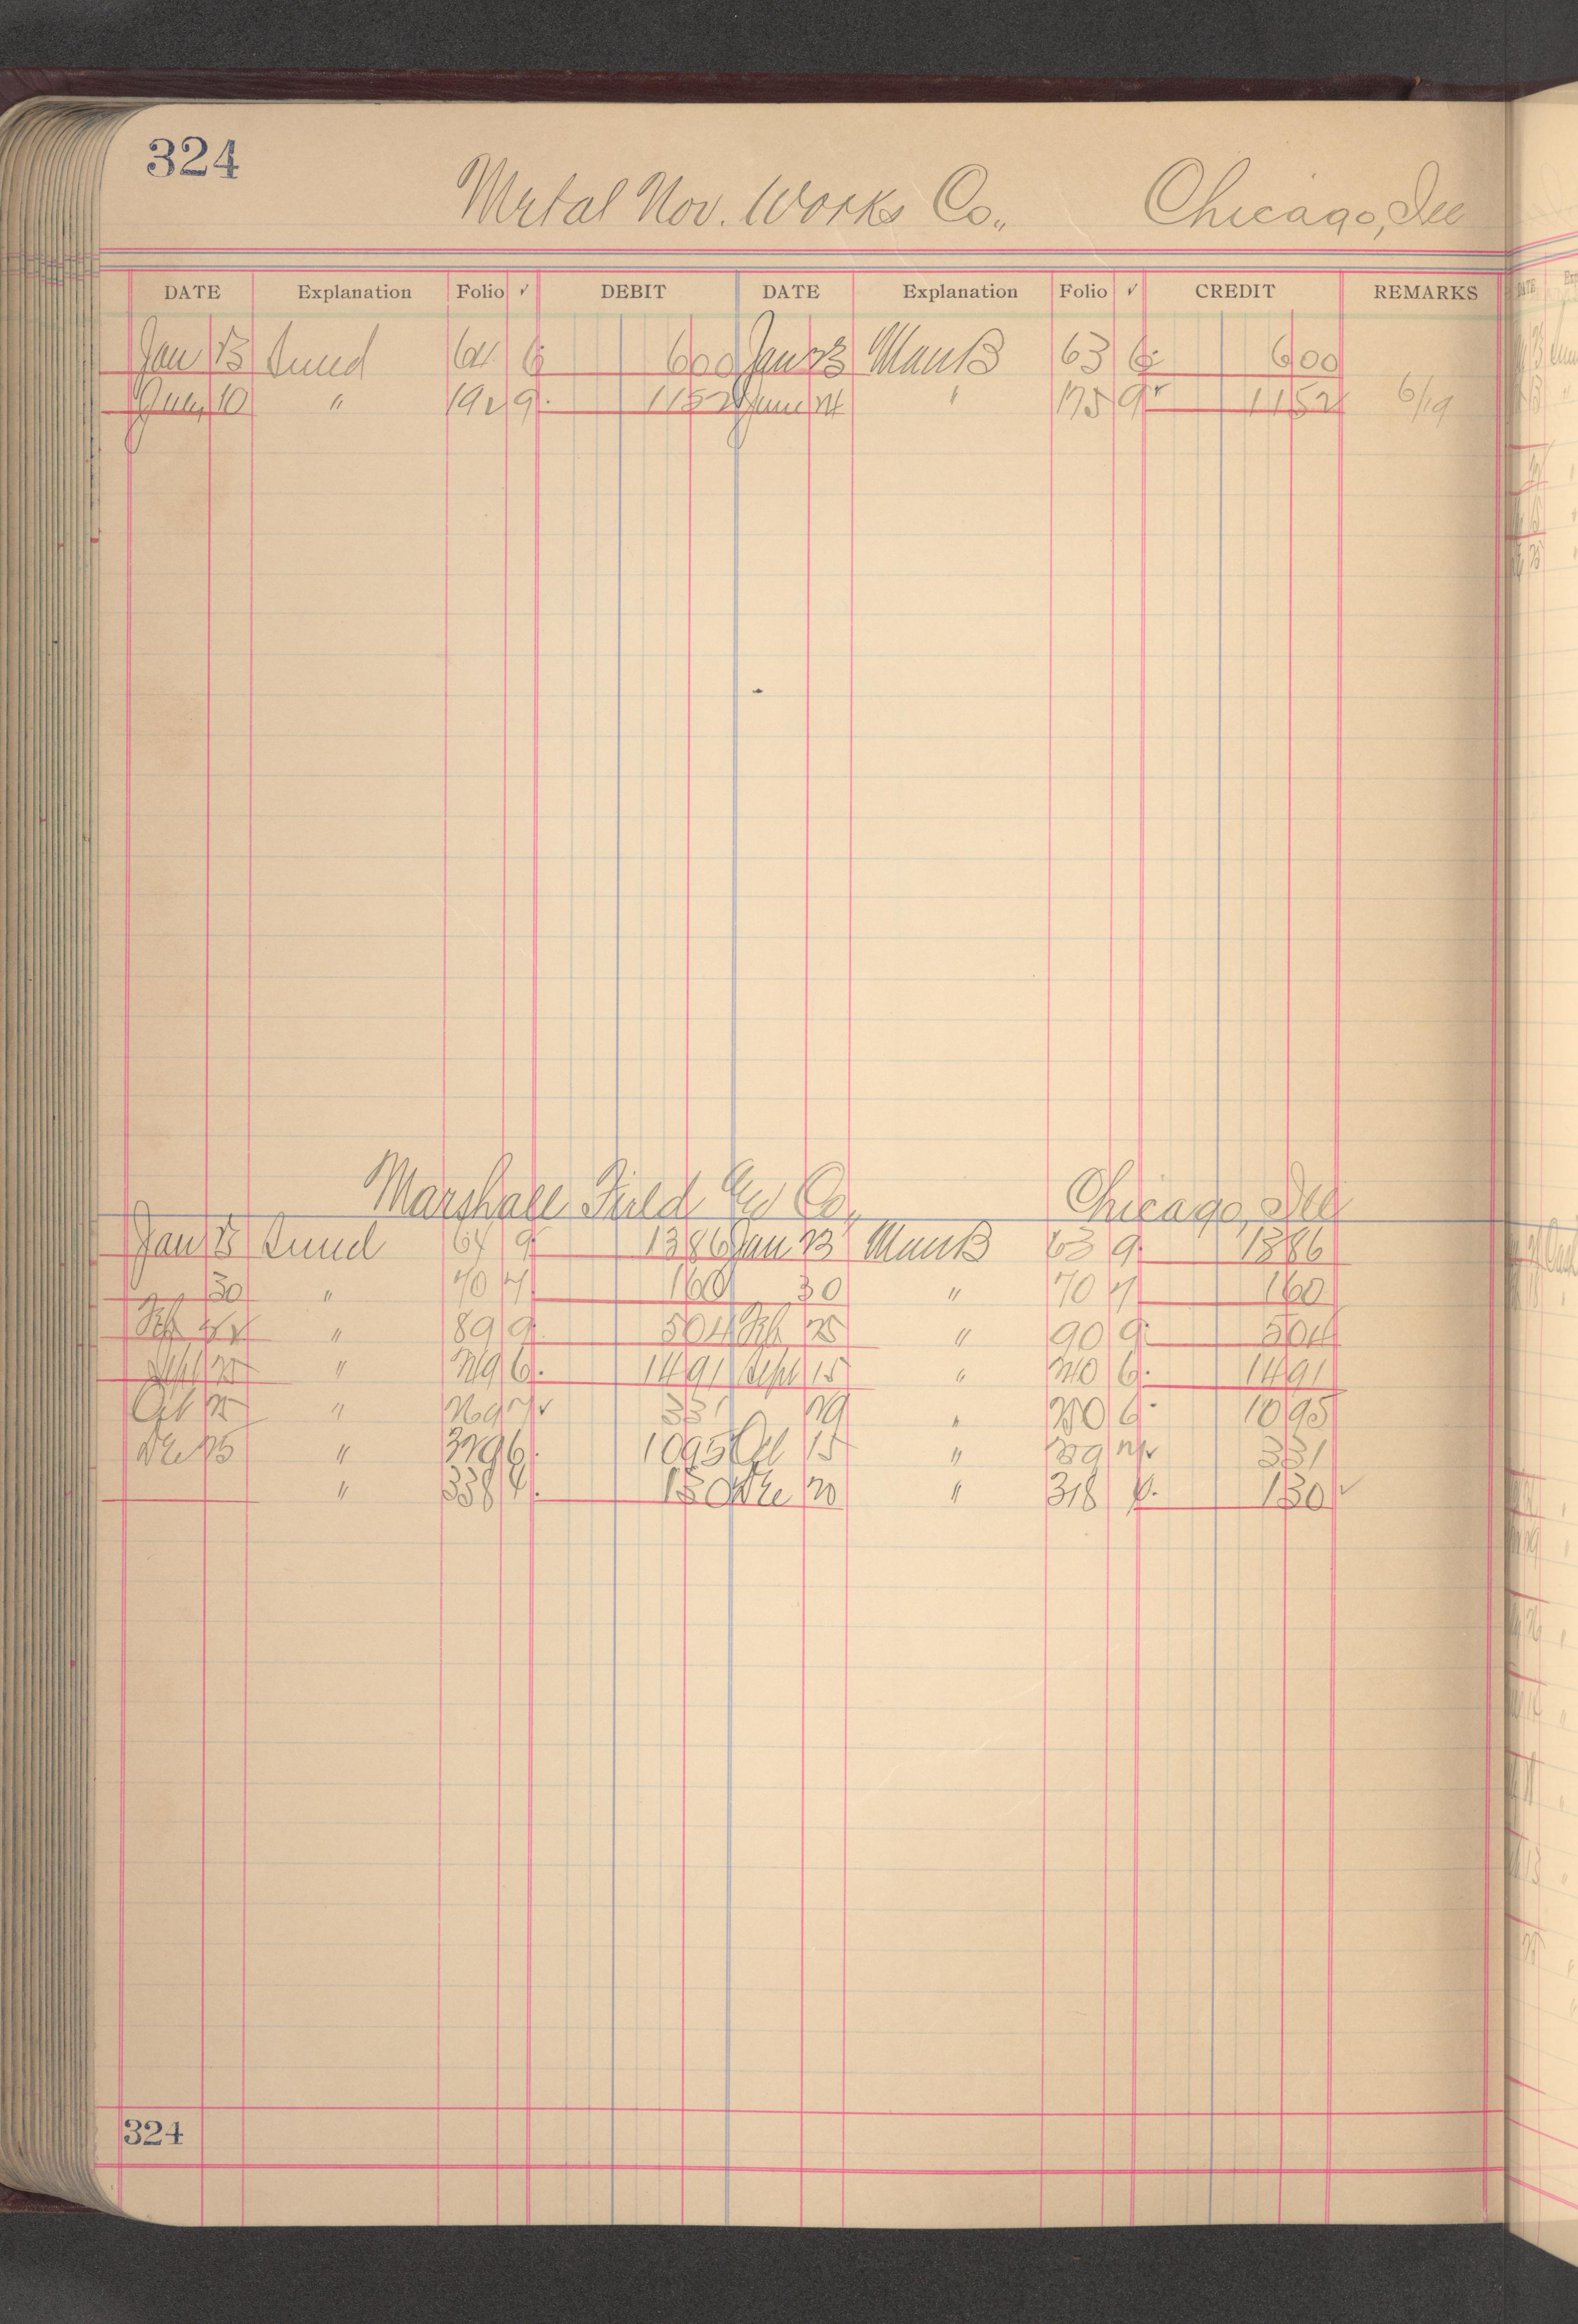 324
Metal Nov. Works Co., Chicago, Ill
DATE Explanation Folio ✓ DEBIT DATE Explanation Folio ✓ CREDIT REMARKS
Jan 13 Sund 64 6 600 Jan 13 ManB 63 6 600
July 10 " 192 9 1152 June 24 " 175 9 1152 6/19
Marshall Field & Co., Chicago, Ill
Jan 13 Sund 64 9 1386 Jan 13 ManB 63 9 1386
30 " 70 7 160 30 " 70 7 160
Feb " 89 9 504 Feb 25 " 90 9 504
Sept 25 " 249 6 1491 Sept 15 " 240 6 1491
Oct 25 " 269 331 29 " 250 6 1095
Dec 25 " 329 6 1095 Oct 15 " 331
" 338 130 Dec 20 " 318 130
324